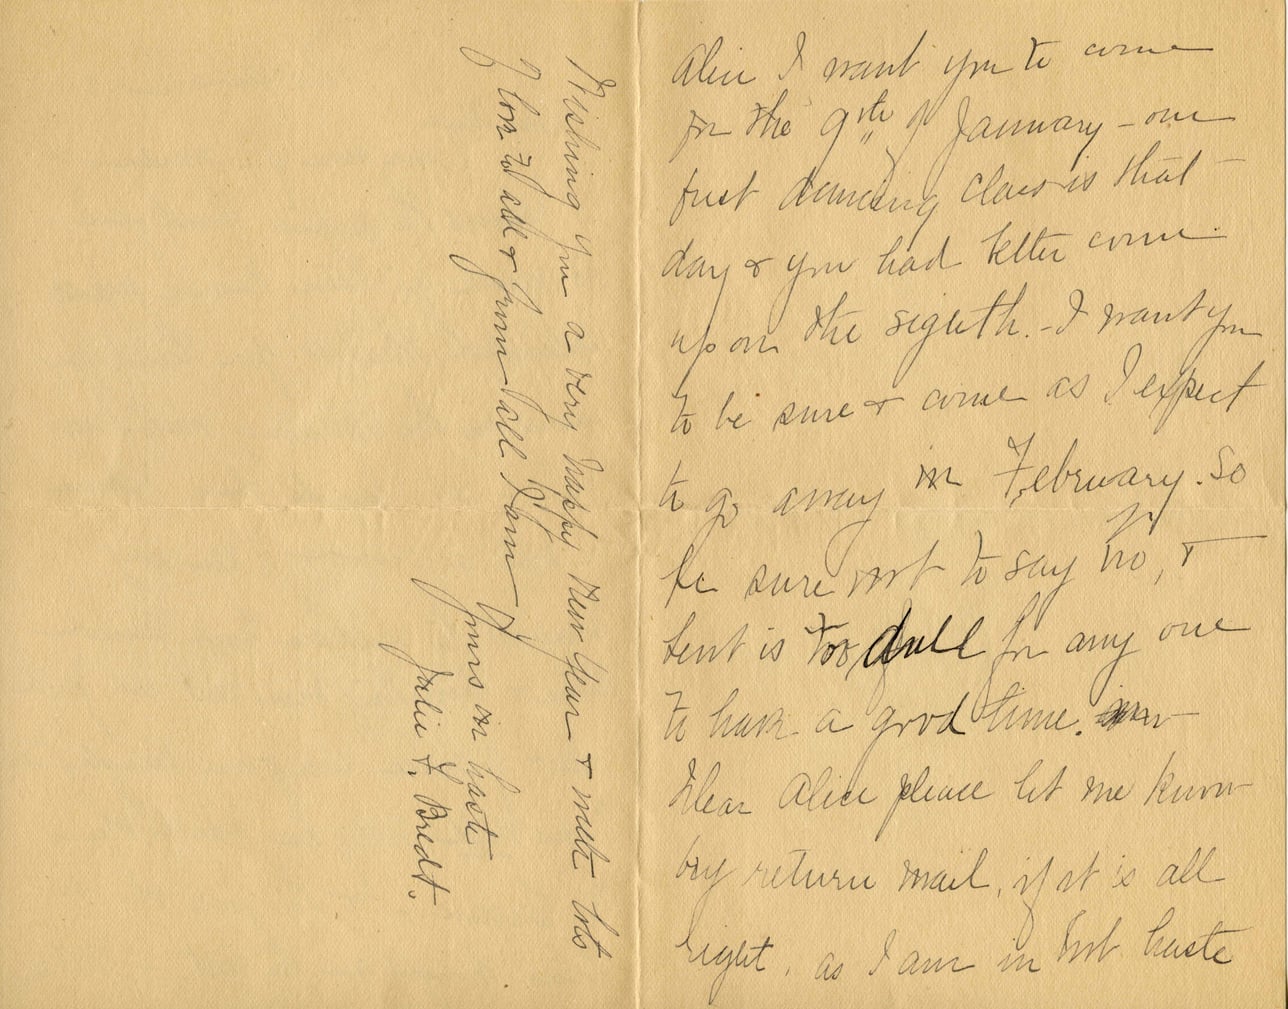 Alice I want you to come
for the 9th of January - our
first dancing class is that
day & you had better come
up on the eighth. - I want you
to be sure & come as I expect
to go away in February. So
be sure not to say no, &
Lent is too dull for any one
to have a good time.
Dear Alice please let me know
by return mail, if it is all
right, as I am in hot haste
Wishing you a very happy New Year & with lots
of love to all & from all I am
yours in haste
Julie F. Bredt.